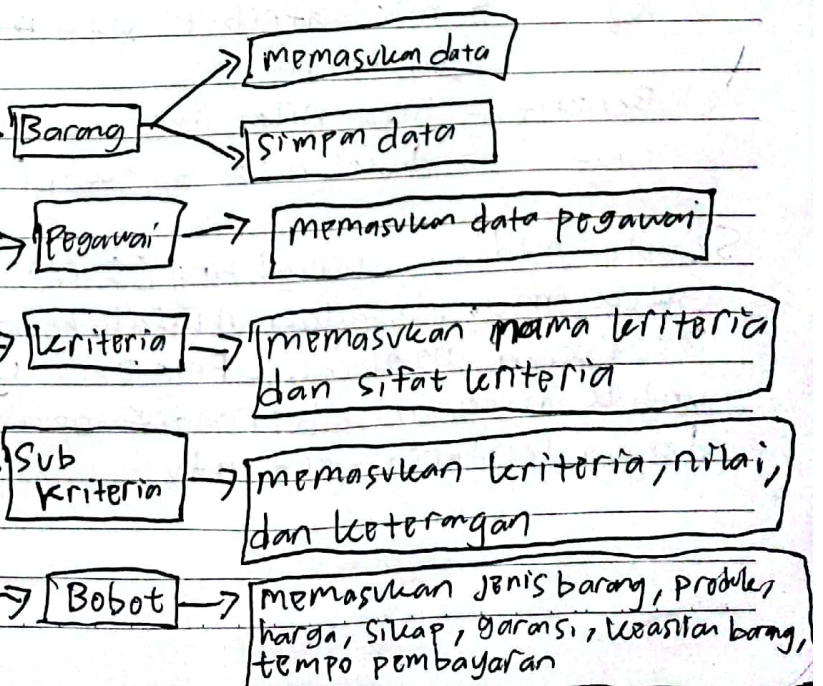 memasukan data
Barang
simpan data
Pegawai
memasukan data pegawai
kriteria
memasukan nama kriteria
dan sifat kriteria
Sub
kriteria
memasukan kriteria, nilai,
dan keterangan
Bobot
memasukan jenis barang, produk,
harga, sikap, garansi, keaslian barang,
tempo pembayaran